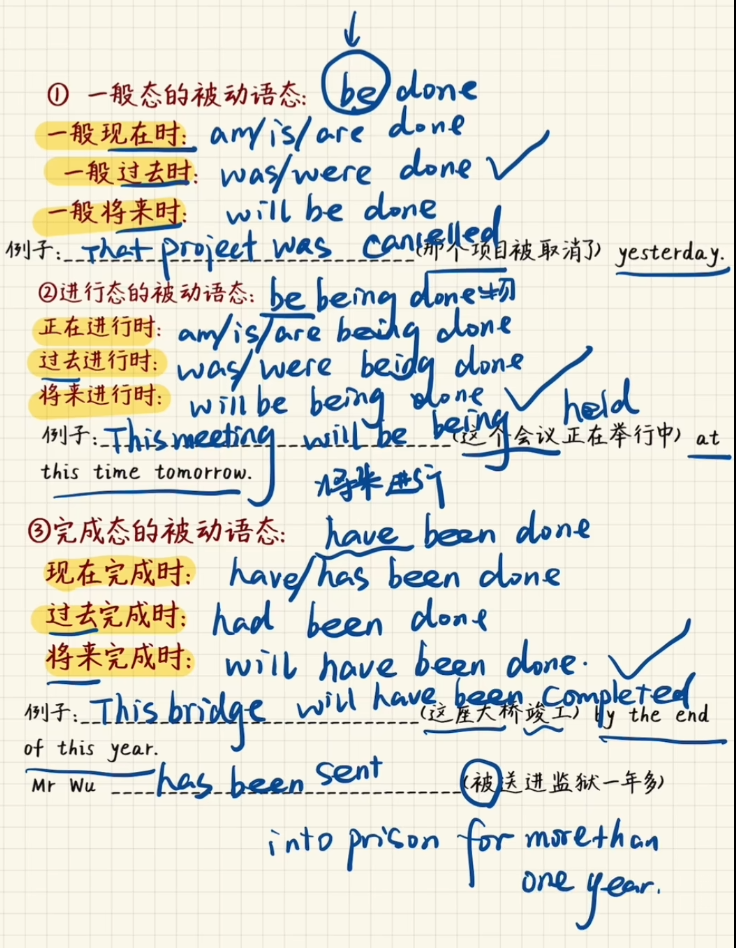 ① 一般态的被动语态: be done
一般现在时: am/is/are done
一般过去时: was/were done
一般将来时: will be done
例子: That project was cancelled (那个项目被取消了) yesterday.
②进行态的被动语态: be being done
正在进行时: am/is/are being done
过去进行时: was/were being done
将来进行时: will be being done
例子: This meeting will be being held (这个会议正在举行中) at
this time tomorrow.
将来进行
③完成态的被动语态: have been done
现在完成时: have/has been done
过去完成时: had been done
将来完成时: will have been done.
例子: This bridge will have been completed (这座大桥竣工) by the end
of this year.
Mr Wu has been sent (被送进监狱一年多)
into prison for more than
one year.